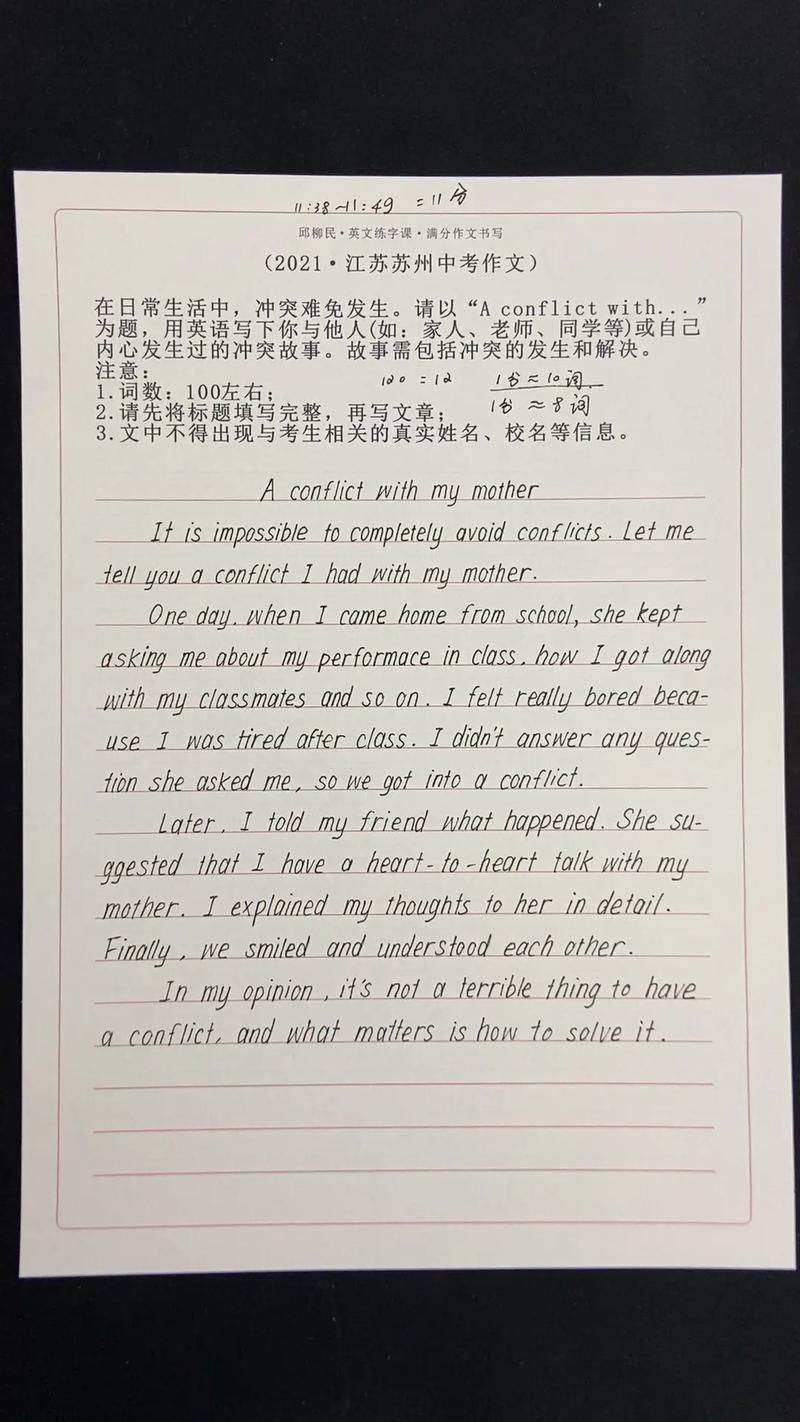 11:38~11:49 =11分
邱柳民·英文练字课·满分作文书写
（2021·江苏苏州中考作文）
在日常生活中，冲突难免发生。请以“A conflict with...”
为题，用英语写下你与他人(如：家人、老师、同学等)或自己
内心发生过的冲突故事。故事需包括冲突的发生和解决。
注意：
1.词数：100左右；
120 = 12 1分≈10词
2.请先将标题填写完整，再写文章；
1分≈8词
3.文中不得出现与考生相关的真实姓名、校名等信息。
A conflict with my mother
It is impossible to completely avoid conflicts. Let me
tell you a conflict I had with my mother.
One day, when I came home from school, she kept
asking me about my performace in class, how I got along
with my classmates and so on. I felt really bored beca-
use I was tired after class. I didn't answer any ques-
tion she asked me, so we got into a conflict.
Later, I told my friend what happened. She su-
ggested that I have a heart-to-heart talk with my
mother. I explained my thoughts to her in detail.
Finally, we smiled and understood each other.
In my opinion, it's not a terrible thing to have
a conflict, and what matters is how to solve it.